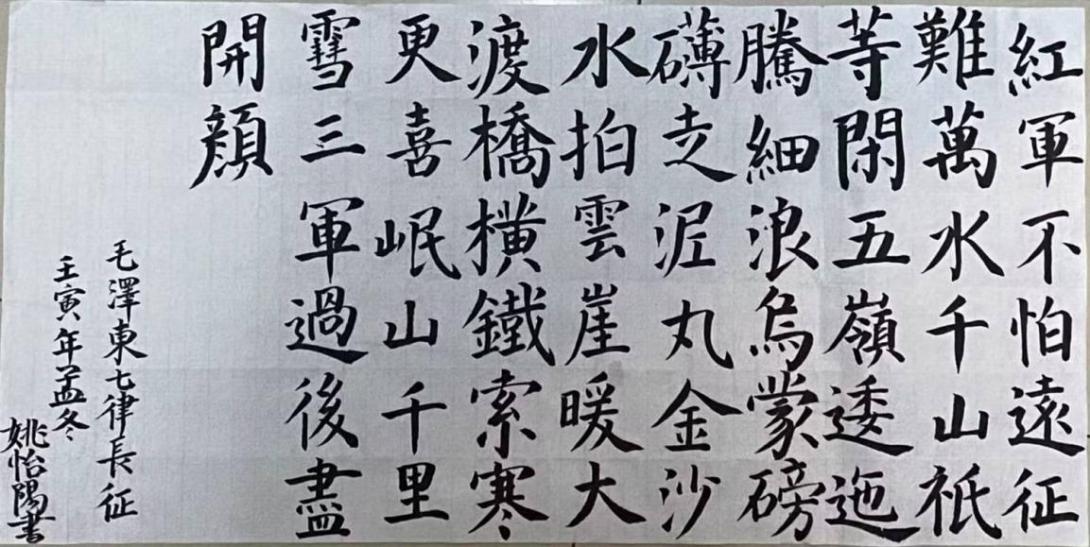 紅軍不怕遠征
難萬水千山祇
等閑五嶺逶迤
騰細浪烏蒙磅
礴走泥丸金沙
水拍雲崖暖大
渡橋橫鐵索寒
更喜岷山千里
雪三軍過後盡
開顏
毛澤東七律長征
壬寅年孟冬
姚怡陽書